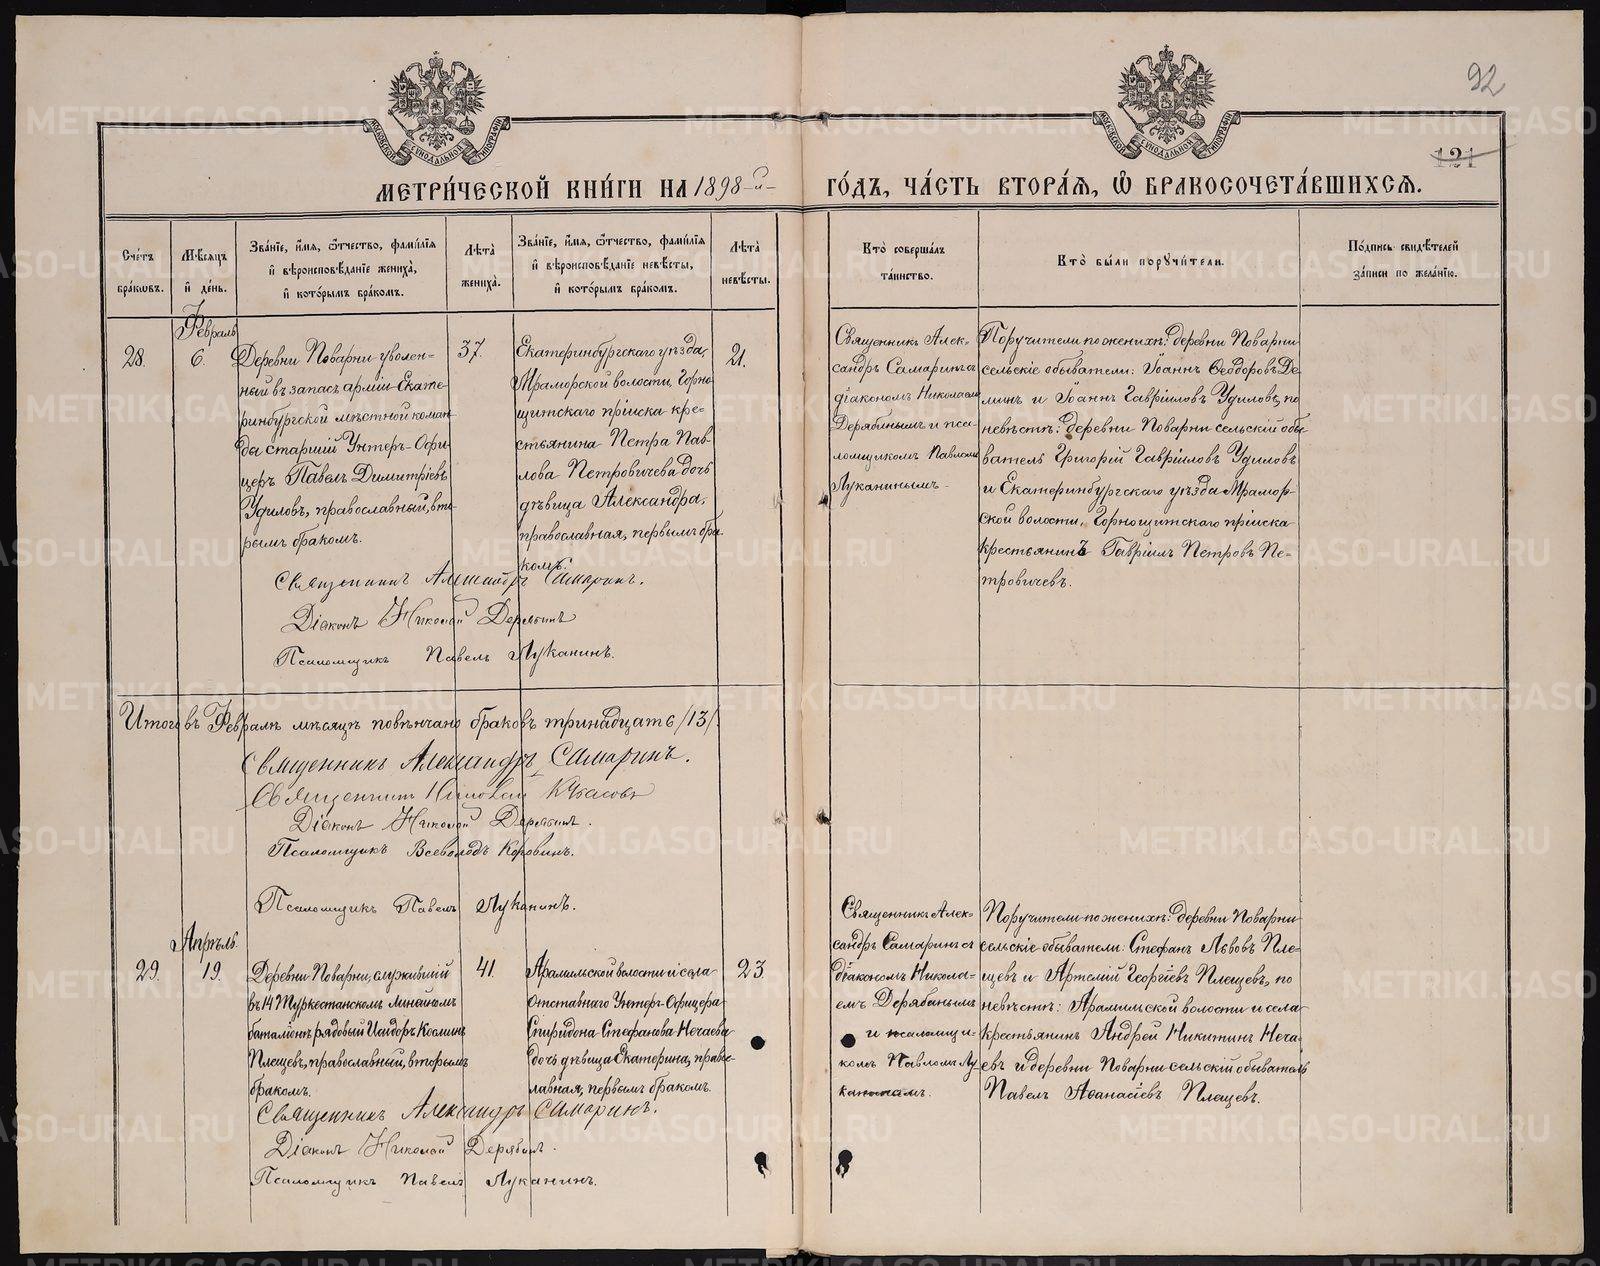 92
121
МОСКОВСКОЙ СѴНОДАЛЬНОЙ ТИПОГРАФІИ
МОСКОВСКОЙ СѴНОДАЛЬНОЙ ТИПОГРАФІИ
МЕТРИ́ЧЕСКОЙ КНИ́ГИ НА 1898-й- ГО́ДЪ, ЧА́СТЬ ВТОРА́Ѧ, Ѽ БРАКОСОЧЕТА́ВШИХСѦ.
Сче́тъ
бра́кѡвъ.
Мѣ́сѧцъ
и҆ де́нь.
Зва́нїе, и҆́мѧ, ѻ҆́тчество, фами́лїѧ
и҆ вѣроисповѣ́данїе жениха̀,
и҆ кото́рымъ бра́комъ.
Лѣта̀
жениха̀.
Зва́нїе, и҆́мѧ, ѻ҆́тчество, фами́лїѧ
и҆ вѣроисповѣ́данїе невѣ́сты,
и҆ кото́рымъ бра́комъ.
Лѣта̀
невѣ́сты.
Кто̀ соверша́лъ
та́инство.
Кто̀ бы́ли порꙋчи́тели.
По́дпись свидѣ́телей
за́писи по жела́нїю.
28.
Февраль
6.
Деревни Поварни уволен-
ный въ запасъ арміи Екате-
ринбургской мѣстной коман-
ды старшій Унтеръ-Офи-
церъ Павелъ Димитріевъ
Удиловъ, православный, вто-
рымъ бракомъ.
37.
Екатеринбургскаго уѣзда,
Мраморской волости, Горно-
щитскаго пріиска кре-
стьянина Петра Пав-
лова Петровичева дочь
дѣвица Александра,
православная, первымъ бра-
комъ.
21.
Священникъ Алек-
сандръ Самаринъ съ
діакономъ Николаемъ
Дерябинымъ и пса-
ломщикомъ Павломъ
Луканинымъ.
Поручители по женихѣ: деревни Поварни
сельскіе обыватели: Іоаннъ Ѳеодоровъ Де-
минъ и Іоаннъ Гавріиловъ Удиловъ, по
невѣстѣ: деревни Поварни сельскій обы-
ватель Григорій Гавріиловъ Удиловъ
и Екатеринбургскаго уѣзда Мрамор-
ской волости, Горнощитскаго пріиска
крестьянинъ Гавріилъ Петровъ Пе-
тровичевъ.
Священникъ Александръ Самаринъ.
Діаконъ Николай Дерябинъ
Псаломщикъ Павелъ Луканинъ.
Итого въ Февралѣ мѣсяцѣ повѣнчано браковъ тринадцать /13/.
Священникъ Александръ Самаринъ.
Священникъ Николай
Діаконъ Николай Дерябинъ.
Псаломщикъ Всеволодъ Коровинъ.
Псаломщикъ Павелъ Луканинъ.
29.
Апрѣль.
19.
Деревни Поварни, служившій
въ 14 Туркестанскомъ Линейномъ
баталіонѣ рядовый Исидоръ Косминъ
Плещевъ, православный, вторымъ
бракомъ.
41.
Арамильской волости и села
отставнаго Унтеръ-Офицера
Спиридона Стефанова Нечаева
дочь дѣвица Екатерина, право-
славная, первымъ бракомъ.
23
Священникъ Алек-
сандръ Самаринъ съ
діакономъ Никола-
емъ Дерябинымъ
и псаломщи-
комъ Павломъ Лу-
канинымъ.
Поручители по женихѣ: деревни Поварни
сельскіе обыватели: Стефанъ Львовъ Пле-
щевъ и Артемій Георгіевъ Плещевъ, по
невѣстѣ: Арамильской волости и села
крестьянинъ Андрей Никитинъ Неча-
евъ и деревни Поварни сельскій обыватель
Павелъ Аѳанасіевъ Плещевъ.
Священникъ Александръ Самаринъ.
Діаконъ Николай Дерябинъ.
Псаломщикъ Павелъ Луканинъ.
METRIKI.GASO-URAL.RU